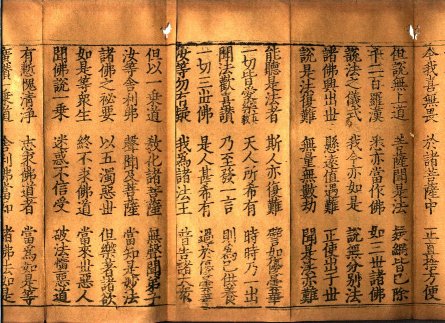 今我喜無畏 於諸菩薩中 正直捨方便
但說無上道 菩薩聞是法 疑網皆已除
千二百羅漢 悉亦當作佛 如三世諸佛
說法之儀式 我今亦如是 說無分別法
諸佛興出世 懸遠值遇難 正使出于世
說是法復難 無量無數劫 聞是法亦難
能聽是法者 斯人亦復難 譬如優曇華
一切皆愛樂 天人所希有 時時乃一出
聞法歡喜讚 乃至發一言 則爲已供養
一切三世佛 是人甚希有 過於優曇華
汝等勿有疑 我爲諸法王 普告諸大衆
但以一乘道 教化諸菩薩 無聲聞弟子
汝等舍利弗 聲聞及菩薩 當知是妙法
諸佛之秘要 以五濁惡世 但樂著諸欲
如是等衆生 終不求佛道 當來世惡人
聞佛說一乘 迷惑不信受 破法墮惡道
有慚愧清淨 志求佛道者 當爲如是等
廣讚一乘道 舍利弗當知 諸佛法如是